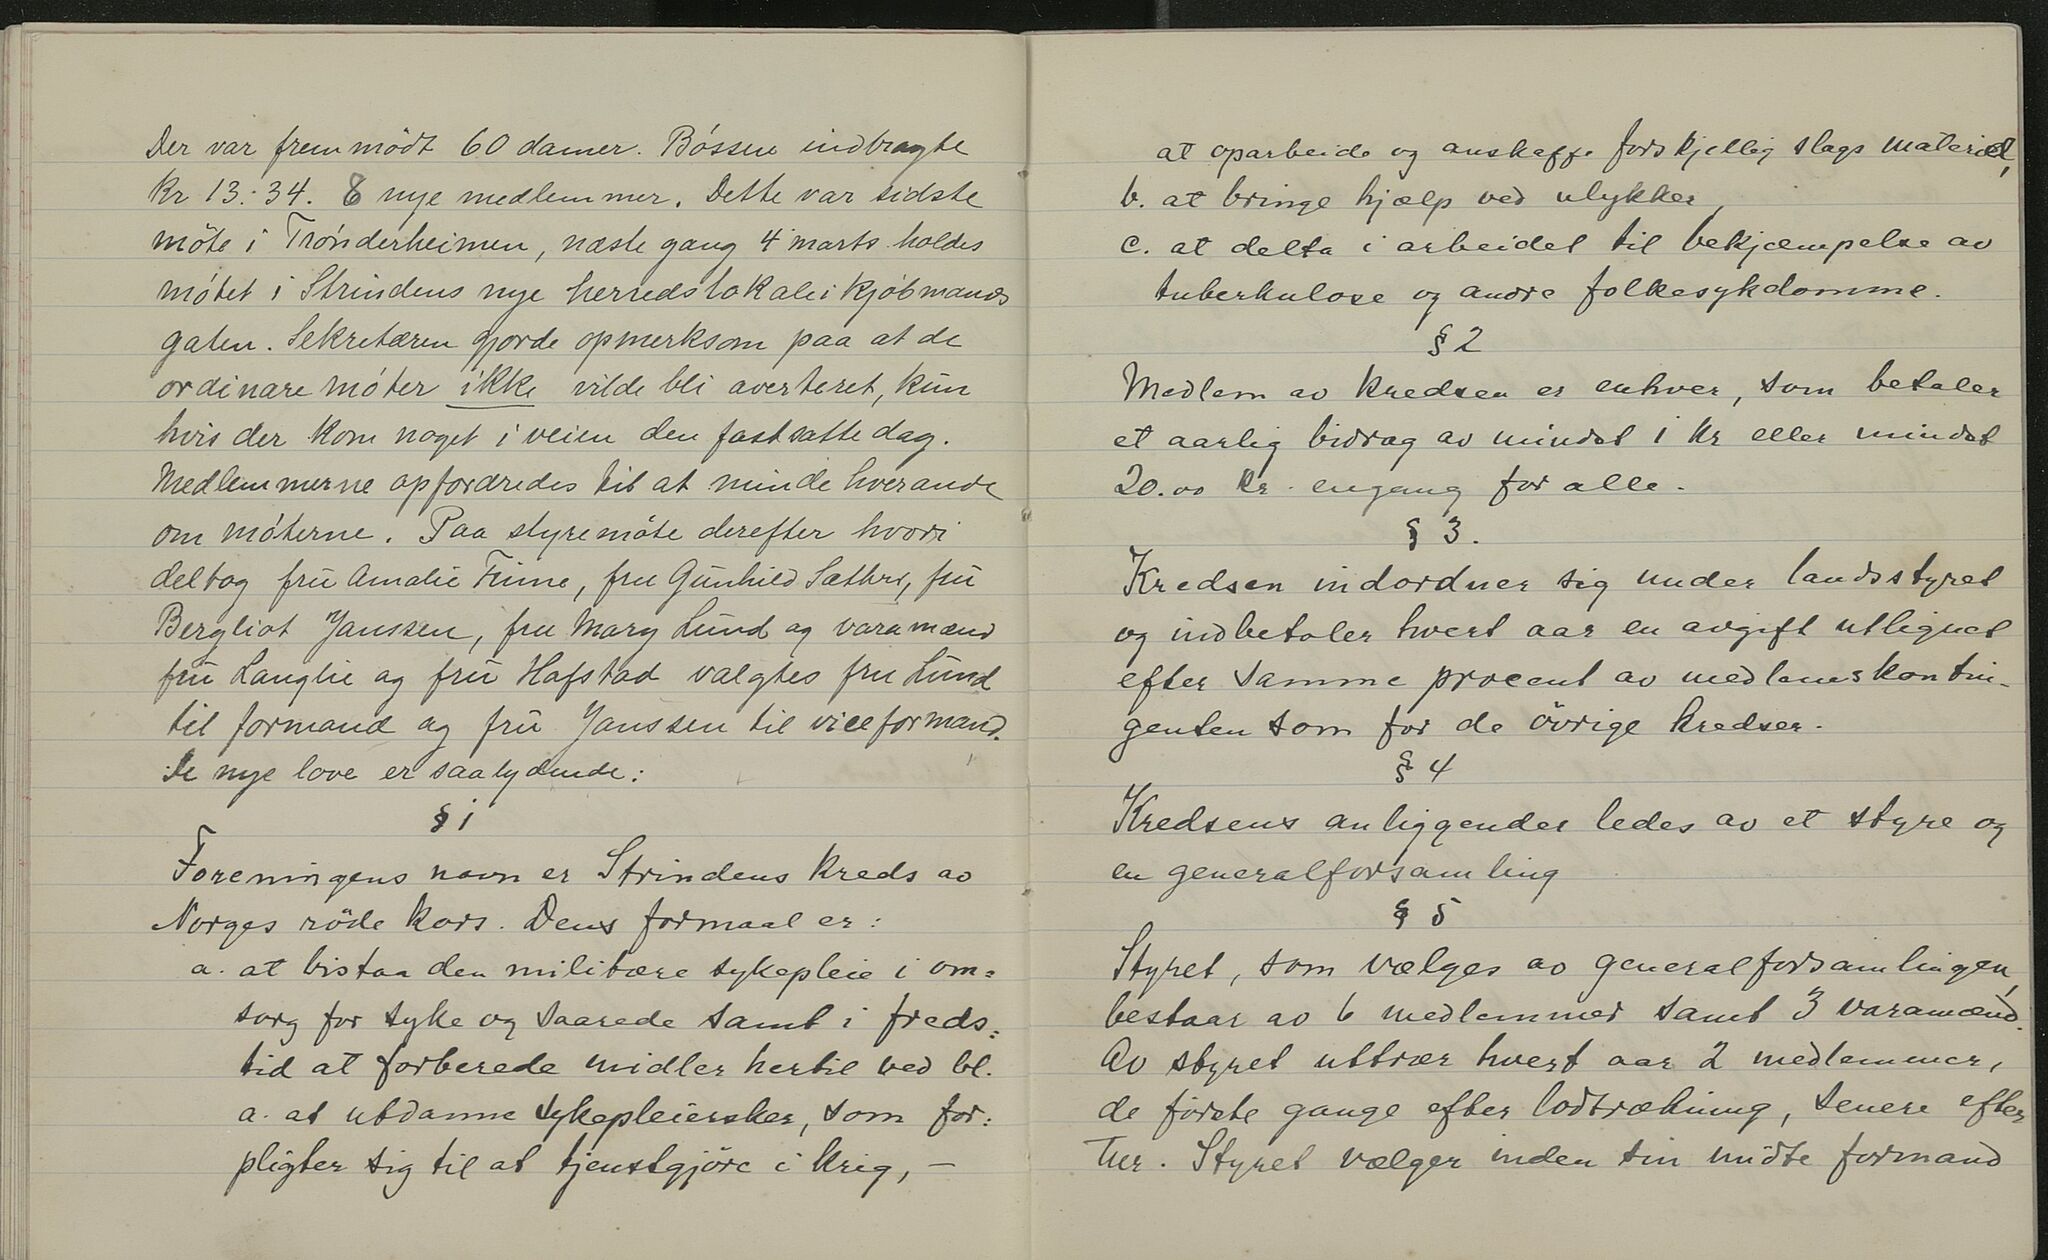 Der var frem mödt 60 damer. Bóssen indbragte
Kr 13.34. 8 nye medlemmer. Dette var sidste
möte i Trónderheimen, næste gang 4 marts holdes
mótet i Strindens nye herredslokale i Kjóbmands
gaten. Sekretæren gjorde opmerksom paa at de
ordinære móter ikke vilde bli averteret, kun
hvis der kom noget i veien den fastsatte dag.
Medlemmerne opfordredes til at minde hverandre
om móterne. Paa styremöte derefter hvori
deltog fru Amalie Finne, fru Gunhild Sæther, fru
Bergliot Janssen, fru Mary Lund og varamænd
fru Langlie og fru Hafstad valgtes fru Lund
til formand og fru Janssen til viceformand.
De nye love er saalydende:
§ 1
Foreningens navn er Strindens kreds av
Norges röde kors. Dens formaal er:
a. at bistaa den militære sykepleie i om=
sorg for syke og saarede samt i freds=
tid at forberede midler hertil ved bl.
a. at utdanne sykepleiersker, som for=
pligter sig til at tjenstgjöre i krig, —
at oparbeide og anskaffe forskjellig slags materiel,
b. at bringe hjælp ved ulykker,
c. at delta i arbeidet til bekjæmpelse av
tuberkulose og andre folkesykdomme.
§ 2
Medlem av kredsen er enhver, som betaler
et aarlig bidrag av mindst 1 kr eller mindst
20.00 kr. engang for alle.
§ 3.
Kredsen indordner sig under landsstyret
og indbetaler hvert aar en avgift utlignet
efter samme procent av medlemskontin-
genten som for de övrige kredser.
§ 4
Kredsens anliggender ledes av et styre og
en generalforsamling
§ 5
Styret, som vælges av generalforsamlingen,
bestaar av 6 medlemmer samt 3 varamænd.
Av styret uttrær hvert aar 2 medlemmer,
de förste gange efter lodtrækning, senere efter
tur. Styret vælger inden sin midte formand